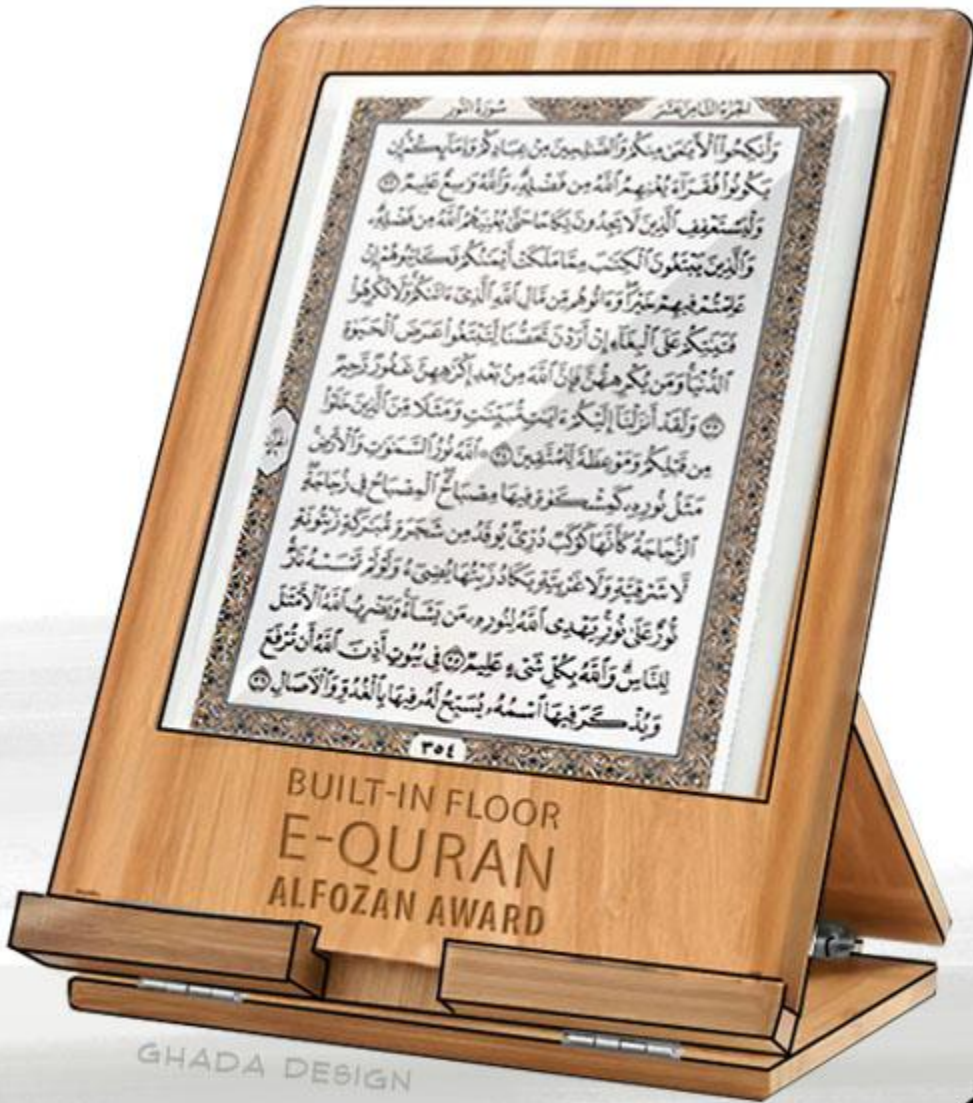 سُورَةُ النُّورِ الجُزْءُ الثَّامِنَ عَشَرَ
وَأَنكِحُوا۟ ٱلْأَيَٰمَىٰ مِنكُمْ وَٱلصَّٰلِحِينَ مِنْ عِبَادِكُمْ وَإِمَآئِكُمْ إِن
يَكُونُوا۟ فُقَرَآءَ يُغْنِهِمُ ٱللَّهُ مِن فَضْلِهِۦ وَٱللَّهُ وَٰسِعٌ عَلِيمٌ ٣٢
وَلْيَسْتَعْفِفِ ٱلَّذِينَ لَا يَجِدُونَ نِكَاحًا حَتَّىٰ يُغْنِيَهُمُ ٱللَّهُ مِن فَضْلِهِۦ
وَٱلَّذِينَ يَبْتَغُونَ ٱلْكِتَٰبَ مِمَّا مَلَكَتْ أَيْمَٰنُكُمْ فَكَاتِبُوهُمْ إِنْ
عَلِمْتُمْ فِيهِمْ خَيْرًا وَءَاتُوهُم مِّن مَّالِ ٱللَّهِ ٱلَّذِىٓ ءَاتَىٰكُمْ وَلَا تُكْرِهُوا۟
فَتَيَٰتِكُمْ عَلَى ٱلْبِغَآءِ إِنْ أَرَدْنَ تَحَصُّنًا لِّتَبْتَغُوا۟ عَرَضَ ٱلْحَيَوٰةِ
ٱلدُّنْيَا وَمَن يُكْرِههُّنَّ فَإِنَّ ٱللَّهَ مِنۢ بَعْدِ إِكْرَٰهِهِنَّ غَفُورٌ رَّحِيمٌ
٣٣ وَلَقَدْ أَنزَلْنَآ إِلَيْكُمْ ءَايَٰتٍ مُّبَيِّنَٰتٍ وَمَثَلًا مِّنَ ٱلَّذِينَ خَلَوْا۟
مِن قَبْلِكُمْ وَمَوْعِظَةً لِّلْمُتَّقِينَ ٣٤ ۞ ٱللَّهُ نُورُ ٱلسَّمَٰوَٰتِ وَٱلْأَرْضِ
مَثَلُ نُورِهِۦ كَمِشْكَوٰةٍ فِيهَا مِصْبَاحٌ ٱلْمِصْبَاحُ فِى زُجَاجَةٍ
ٱلزُّجَاجَةُ كَأَنَّهَا كَوْكَبٌ دُرِّىٌّ يُوقَدُ مِن شَجَرَةٍ مُّبَٰرَكَةٍ زَيْتُونَةٍ
لَّا شَرْقِيَّةٍ وَلَا غَرْبِيَّةٍ يَكَادُ زَيْتُهَا يُضِىٓءُ وَلَوْ لَمْ تَمْسَسْهُ نَارٌ
نُّورٌ عَلَىٰ نُورٍ يَهْدِى ٱللَّهُ لِنُورِهِۦ مَن يَشَآءُ وَيَضْرِبُ ٱللَّهُ ٱلْأَمْثَٰلَ
لِلنَّاسِ وَٱللَّهُ بِكُلِّ شَىْءٍ عَلِيمٌ ٣٥ فِى بُيُوتٍ أَذِنَ ٱللَّهُ أَن تُرْفَعَ
وَيُذْكَرَ فِيهَا ٱسْمُهُۥ يُسَبِّحُ لَهُۥ فِيهَا بِٱلْغُدُوِّ وَٱلْءَاصَالِ ٣٦
٣٥٤
BUILT-IN FLOOR
E-QURAN
ALFOZAN AWARD
GHADA DESIGN